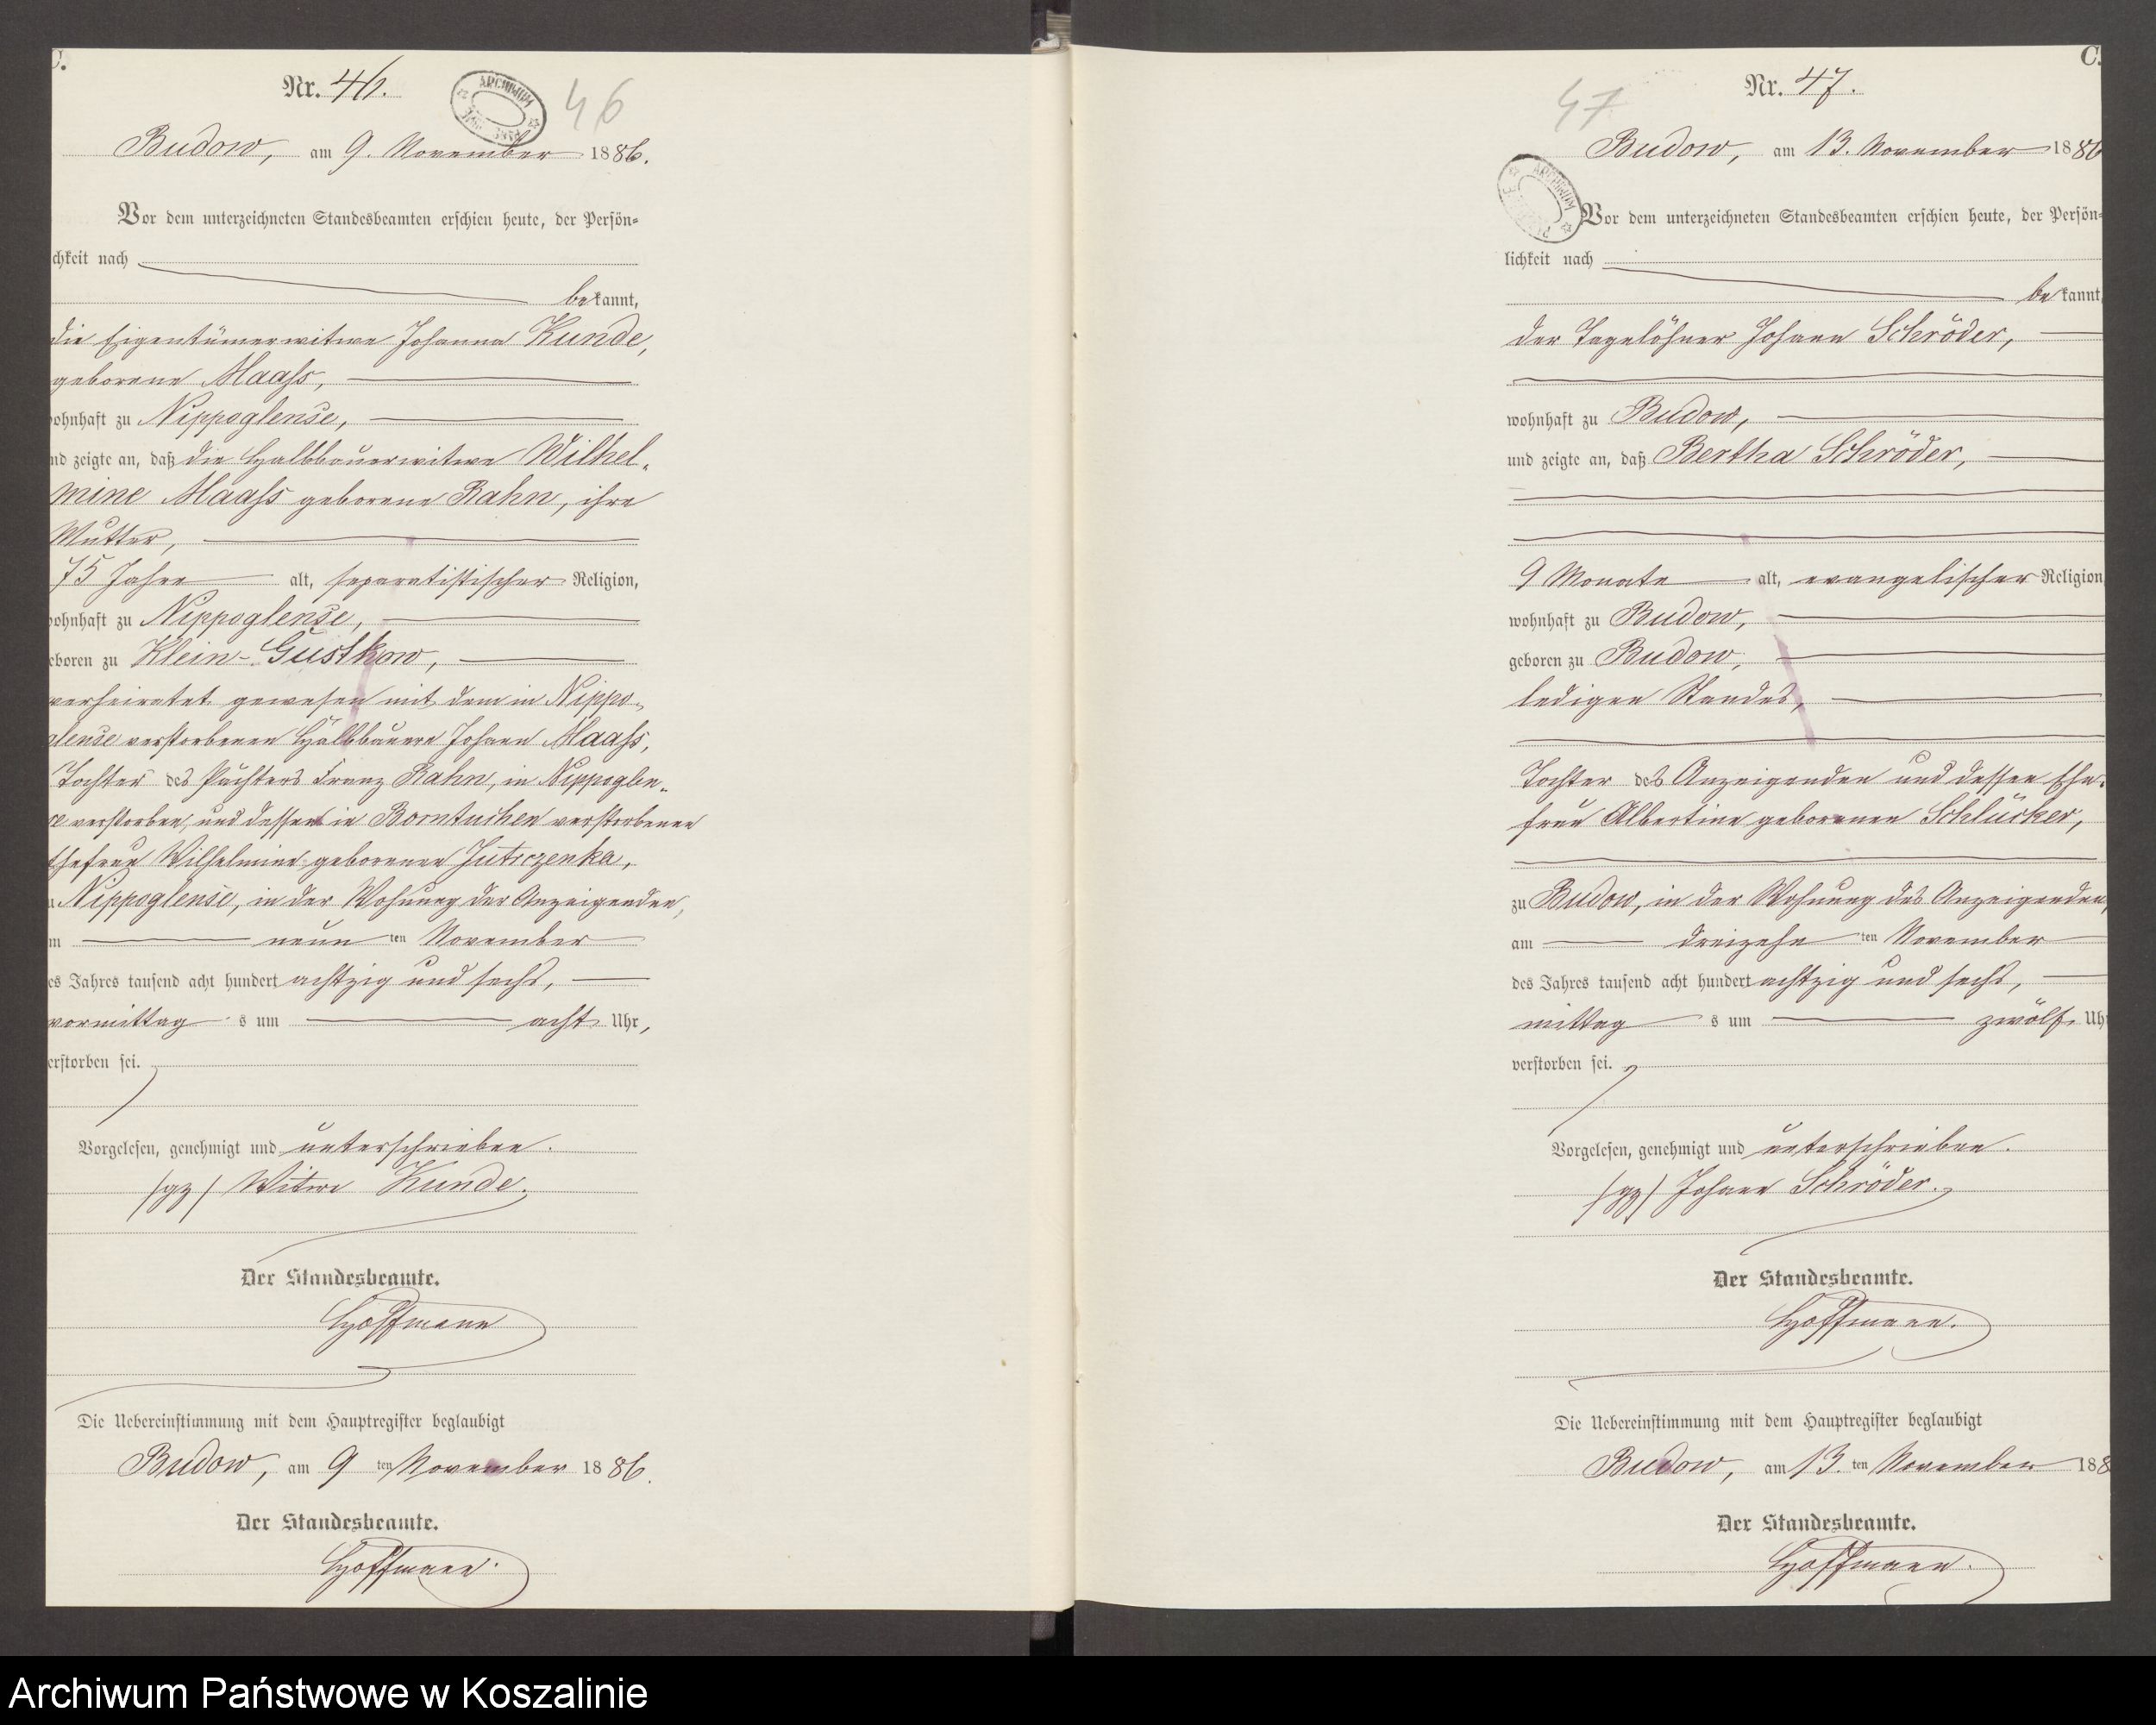 C.
Nr. 46.
46
ARCHIWUM
Budow, am 9. November 1886.
Vor dem unterzeichneten Standesbeamten erschien heute, der Persön=
chkeit nach
bekannt,
die Eigentümerwitwe Johanna Kunde,
geborene Maaß,
wohnhaft zu Nippoglense,
nd zeigte an, daß die Halbbauerwitwe Wilhel-
mine Maaß geborene Rahn, ihre
Mutter,
75 Jahre alt, separatistischer Religion,
wohnhaft zu Nippoglense,
eboren zu Klein-Gustkow,
verheiratet gewesen mit dem in Nippo-
glense verstorbenen Halbbauern Johann Maaß,
Tochter des Pächters Franz Rahn, in Nippoglen-
se verstorben, und dessen in Borntuchen verstorbenen
Ehefrau Wilhelmine geborenen Jutrczenka,
u Nippoglense, in der Wohnung der Anzeigenden,
m neun ten November
es Jahres tausend acht hundert achtzig und sechs,
vormittag s um acht Uhr,
erstorben sei.
Vorgelesen, genehmigt und unterschrieben.
/gz/ Witwe Kunde.
Der Standesbeamte.
Hoffmann
Die Uebereinstimmung mit dem Hauptregister beglaubigt
Budow, am 9 ten November 1886.
Der Standesbeamte.
Hoffmann.
C.
Nr. 47.
47
ARCHIWUM
Budow, am 13. November 1886
Vor dem unterzeichneten Standesbeamten erschien heute, der Persön=
lichkeit nach
bekannt,
der Tagelöhner Johann Schröder,
wohnhaft zu Budow,
und zeigte an, daß Bertha Schröder,
9 Monate alt, evangelischer Religion
wohnhaft zu Budow,
geboren zu Budow,
ledigen Standes,
Tochter des Anzeigenden und dessen Ehe-
frau Albertine geborenen Schlücker,
zu Budow, in der Wohnung des Anzeigenden,
am dreizehn ten November
des Jahres tausend acht hundert achtzig und sechs,
mittag s um zwölf Uh
verstorben sei.
Vorgelesen, genehmigt und unterschrieben.
/gz/ Johann Schröder.
Der Standesbeamte.
Hoffmann.
Die Uebereinstimmung mit dem Hauptregister beglaubigt
Budow, am 13. ten November 188
Der Standesbeamte.
Hoffmann.
Archiwum Państwowe w Koszalinie